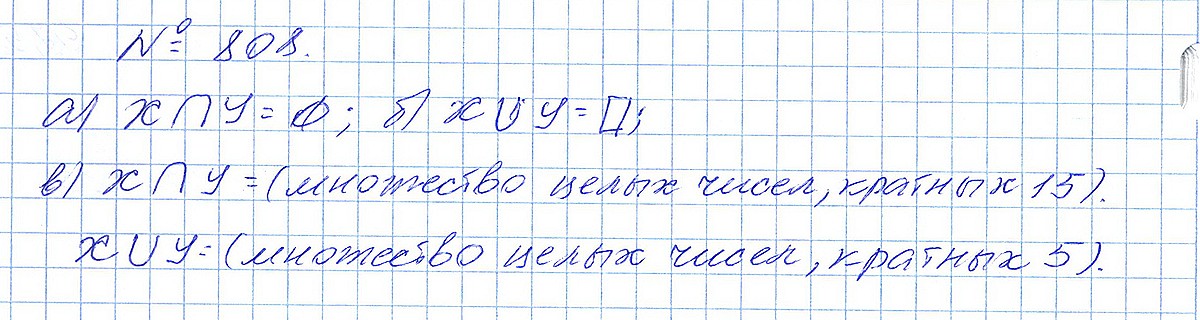 № 808.
а) X∩У = ∅; б) X∪У = Ц;
в) X∩У = (множество целых чисел, кратных 15).
X∪У = (множество целых чисел, кратных 5).